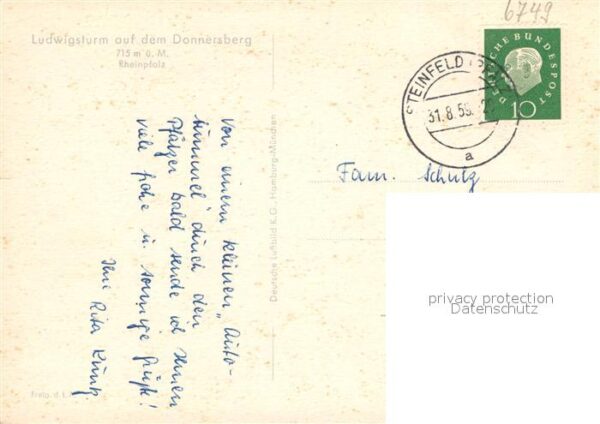 Ludwigsturm auf dem Donnersberg
715 m ü. M.
Rheinpfalz
6749
DEUTSCHE BUNDESPOST
10
STEINFELD (PF
31.8.59.
a
Von einem kleinen „Auto-
bummel" durch den
Pfälzer Wald sende ich Ihnen
viele frohe u. sonnige Grüße!
Ihre Rita Kunz.
Deutsche Luftbild K.G., Hamburg-München
Fam. Schutz
privacy protection
Datenschutz
Freig. d. L.